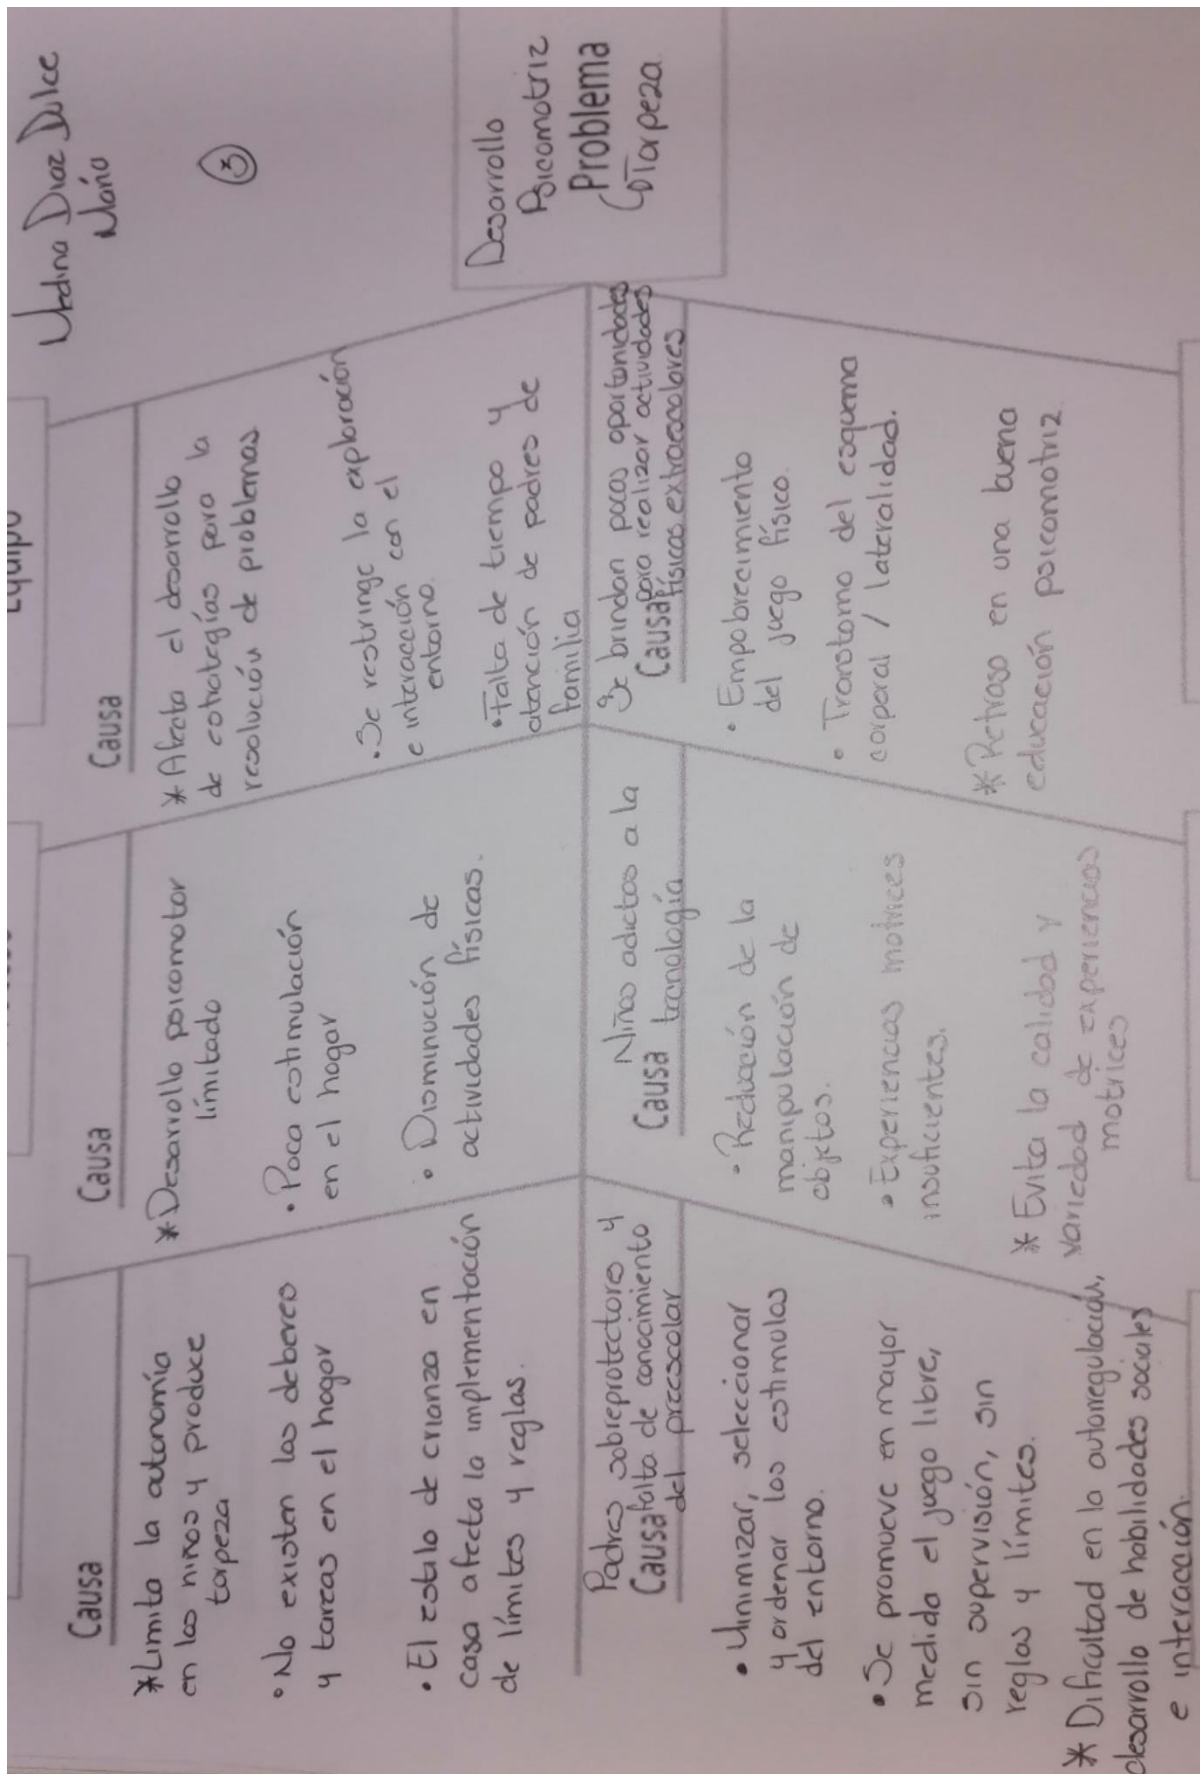 Medina Diaz Dulce
María
Equipo
Causa
*Limita la autonomía
en los niños y produce
torpeza
• No existen los deberes
y tareas en el hogar
• El estilo de crianza en
casa afecta la implementación
de límites y reglas.
Causa
*Desarrollo psicomotor
limitado
• Poca estimulación
en el hogar
• Disminución de
actividades físicas.
Causa
*Afecta el desarrollo
de estrategias para la
resolución de problemas
• Se restringe la exploración
e interacción con el
entorno.
• Falta de tiempo y
atención de padres de
familia
Desarrollo
Psicomotriz
Problema
Torpeza
Padres sobreprotectores y
Causa falta de conocimiento
del preescolar
• Minimizar, seleccionar
y ordenar los estimulos
del entorno.
• Se promueve en mayor
medida el juego libre,
sin supervisión, sin
reglas y límites.
* Dificultad en la autorregulación,
desarrollo de habilidades sociales
e interacción.
Niños adictos a la
Causa tecnología
• Reducción de la
manipulación de
objetos.
• Experiencias motrices
insuficientes.
* Evita la calidad y
variedad de experiencias
motrices
Se brindan pocas oportunidades
Causa para realizar actividades
físicas extraescolares
• Empobrecimiento
del juego físico.
• Transtorno del esquema
corporal / lateralidad.
* Retraso en una buena
educación psicomotriz